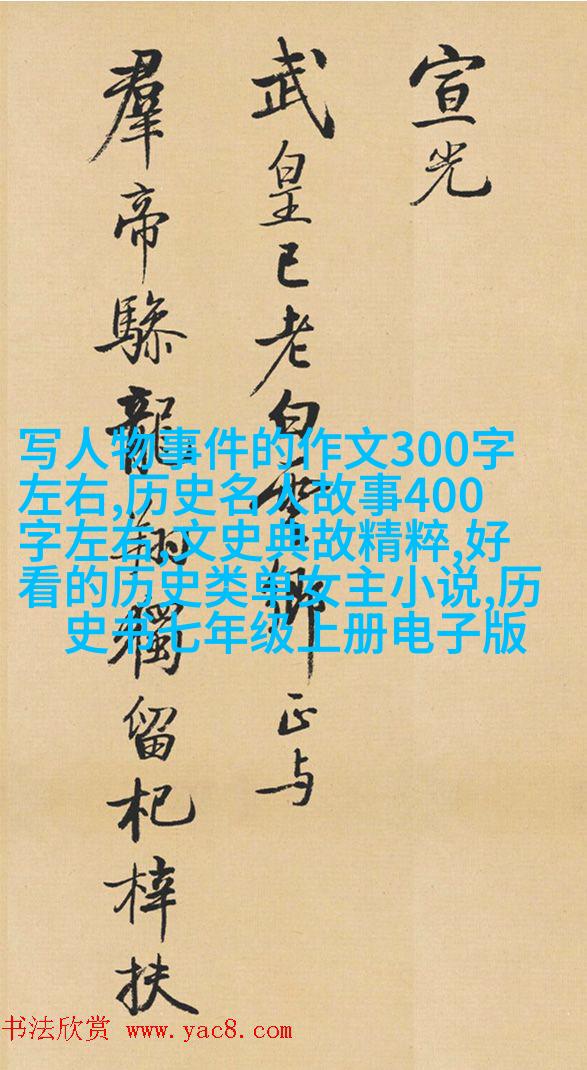 宣光
武皇已老白雲鄉正与
羣帝驂龍翔獨留杞梓扶
写人物事件的作文300字
左右,历史名人故事400
字左右,文史典故精粹,好
看的历史类单女主小说,历
史书七年级上册电子版
书法欣赏 www.yac8.com